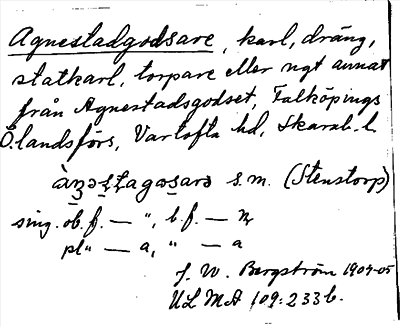 Agnestadgodsare, karl, dräng,
statkarl, torpare eller ngt annat
från Agnestadsgodset, Falköpings
Ö. landsförs, Vartofta hd, Skarab. l.
s.m. (Stenstorp)
sing. ob. f. — ", b. f. — n
pl" — a, " — a
J. W. Bergström 1904-05
ULMA 109:233 b.